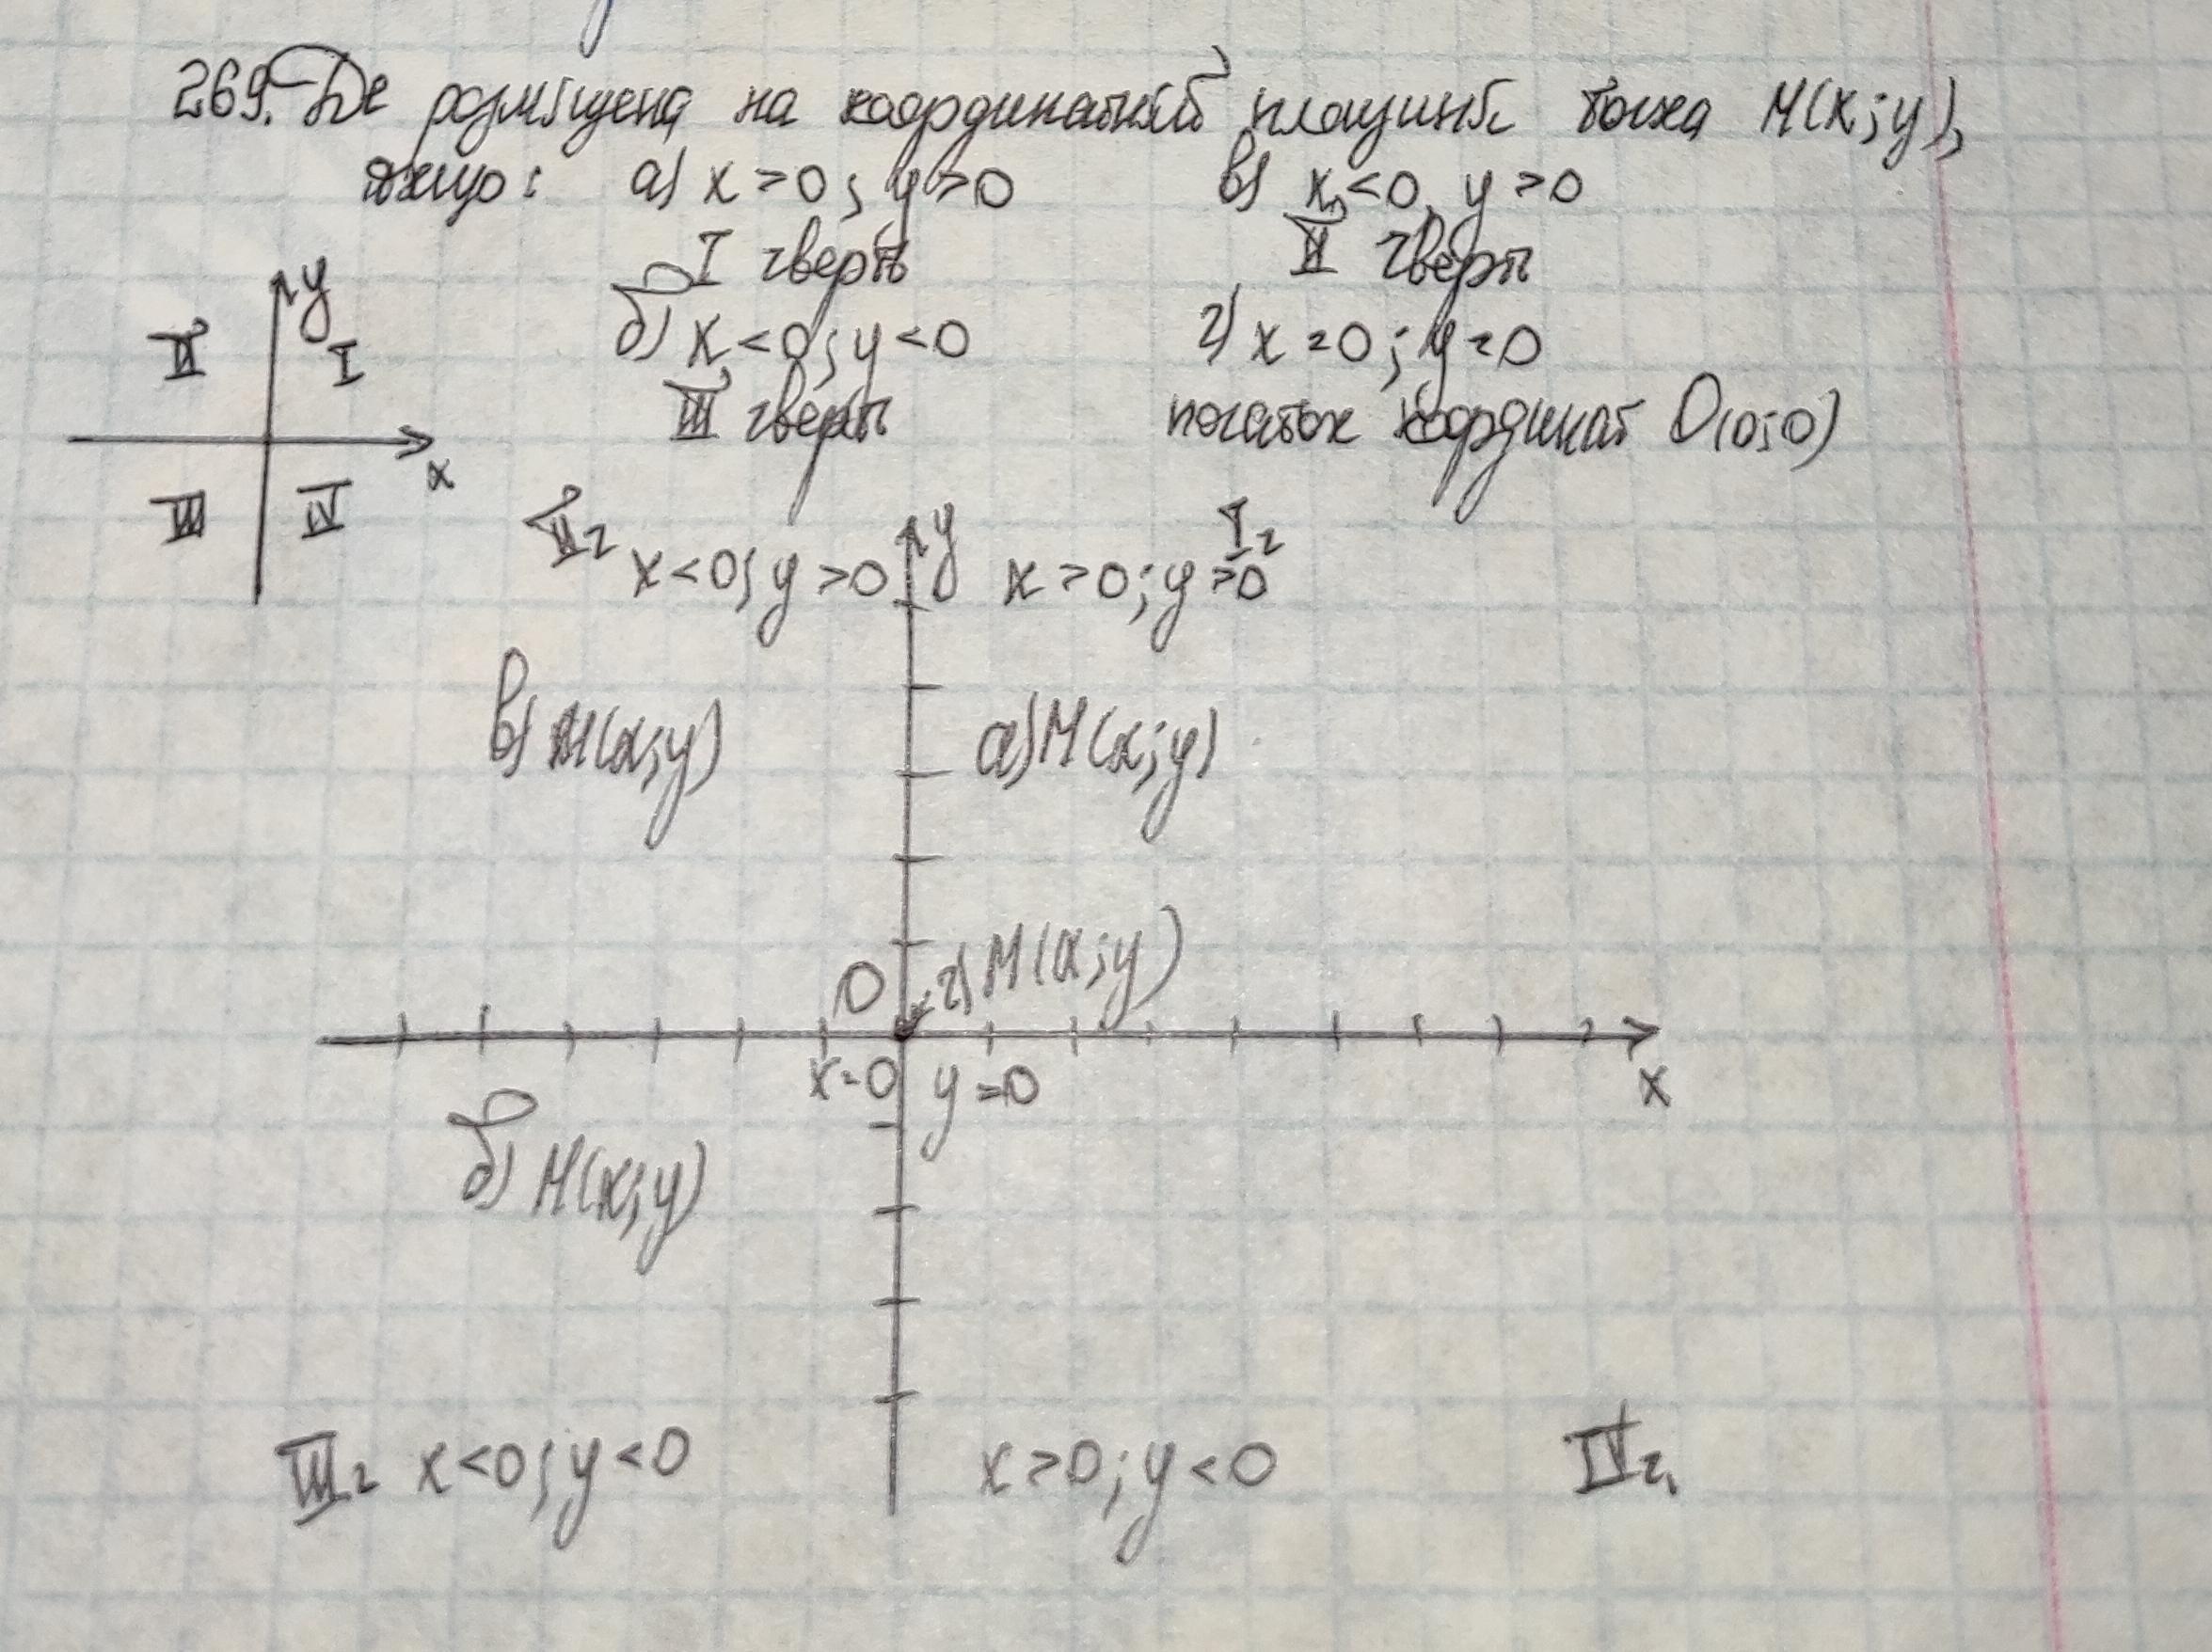 269. Де розміщена на координатній площині точка M(x; y),
якщо: а) x > 0; y > 0 в) x < 0, y > 0
I чверть II чверть
б) x < 0; y < 0 г) x = 0; y = 0
III чверть початок координат O(0; 0)
y
II I
x
III IV
II ч x < 0; y > 0 y x > 0; y > 0 I ч
в) M(x; y) а) M(x; y)
O г) M(x; y)
x = 0 y = 0 x
б) M(x; y)
III ч x < 0; y < 0 x > 0; y < 0 IV ч.